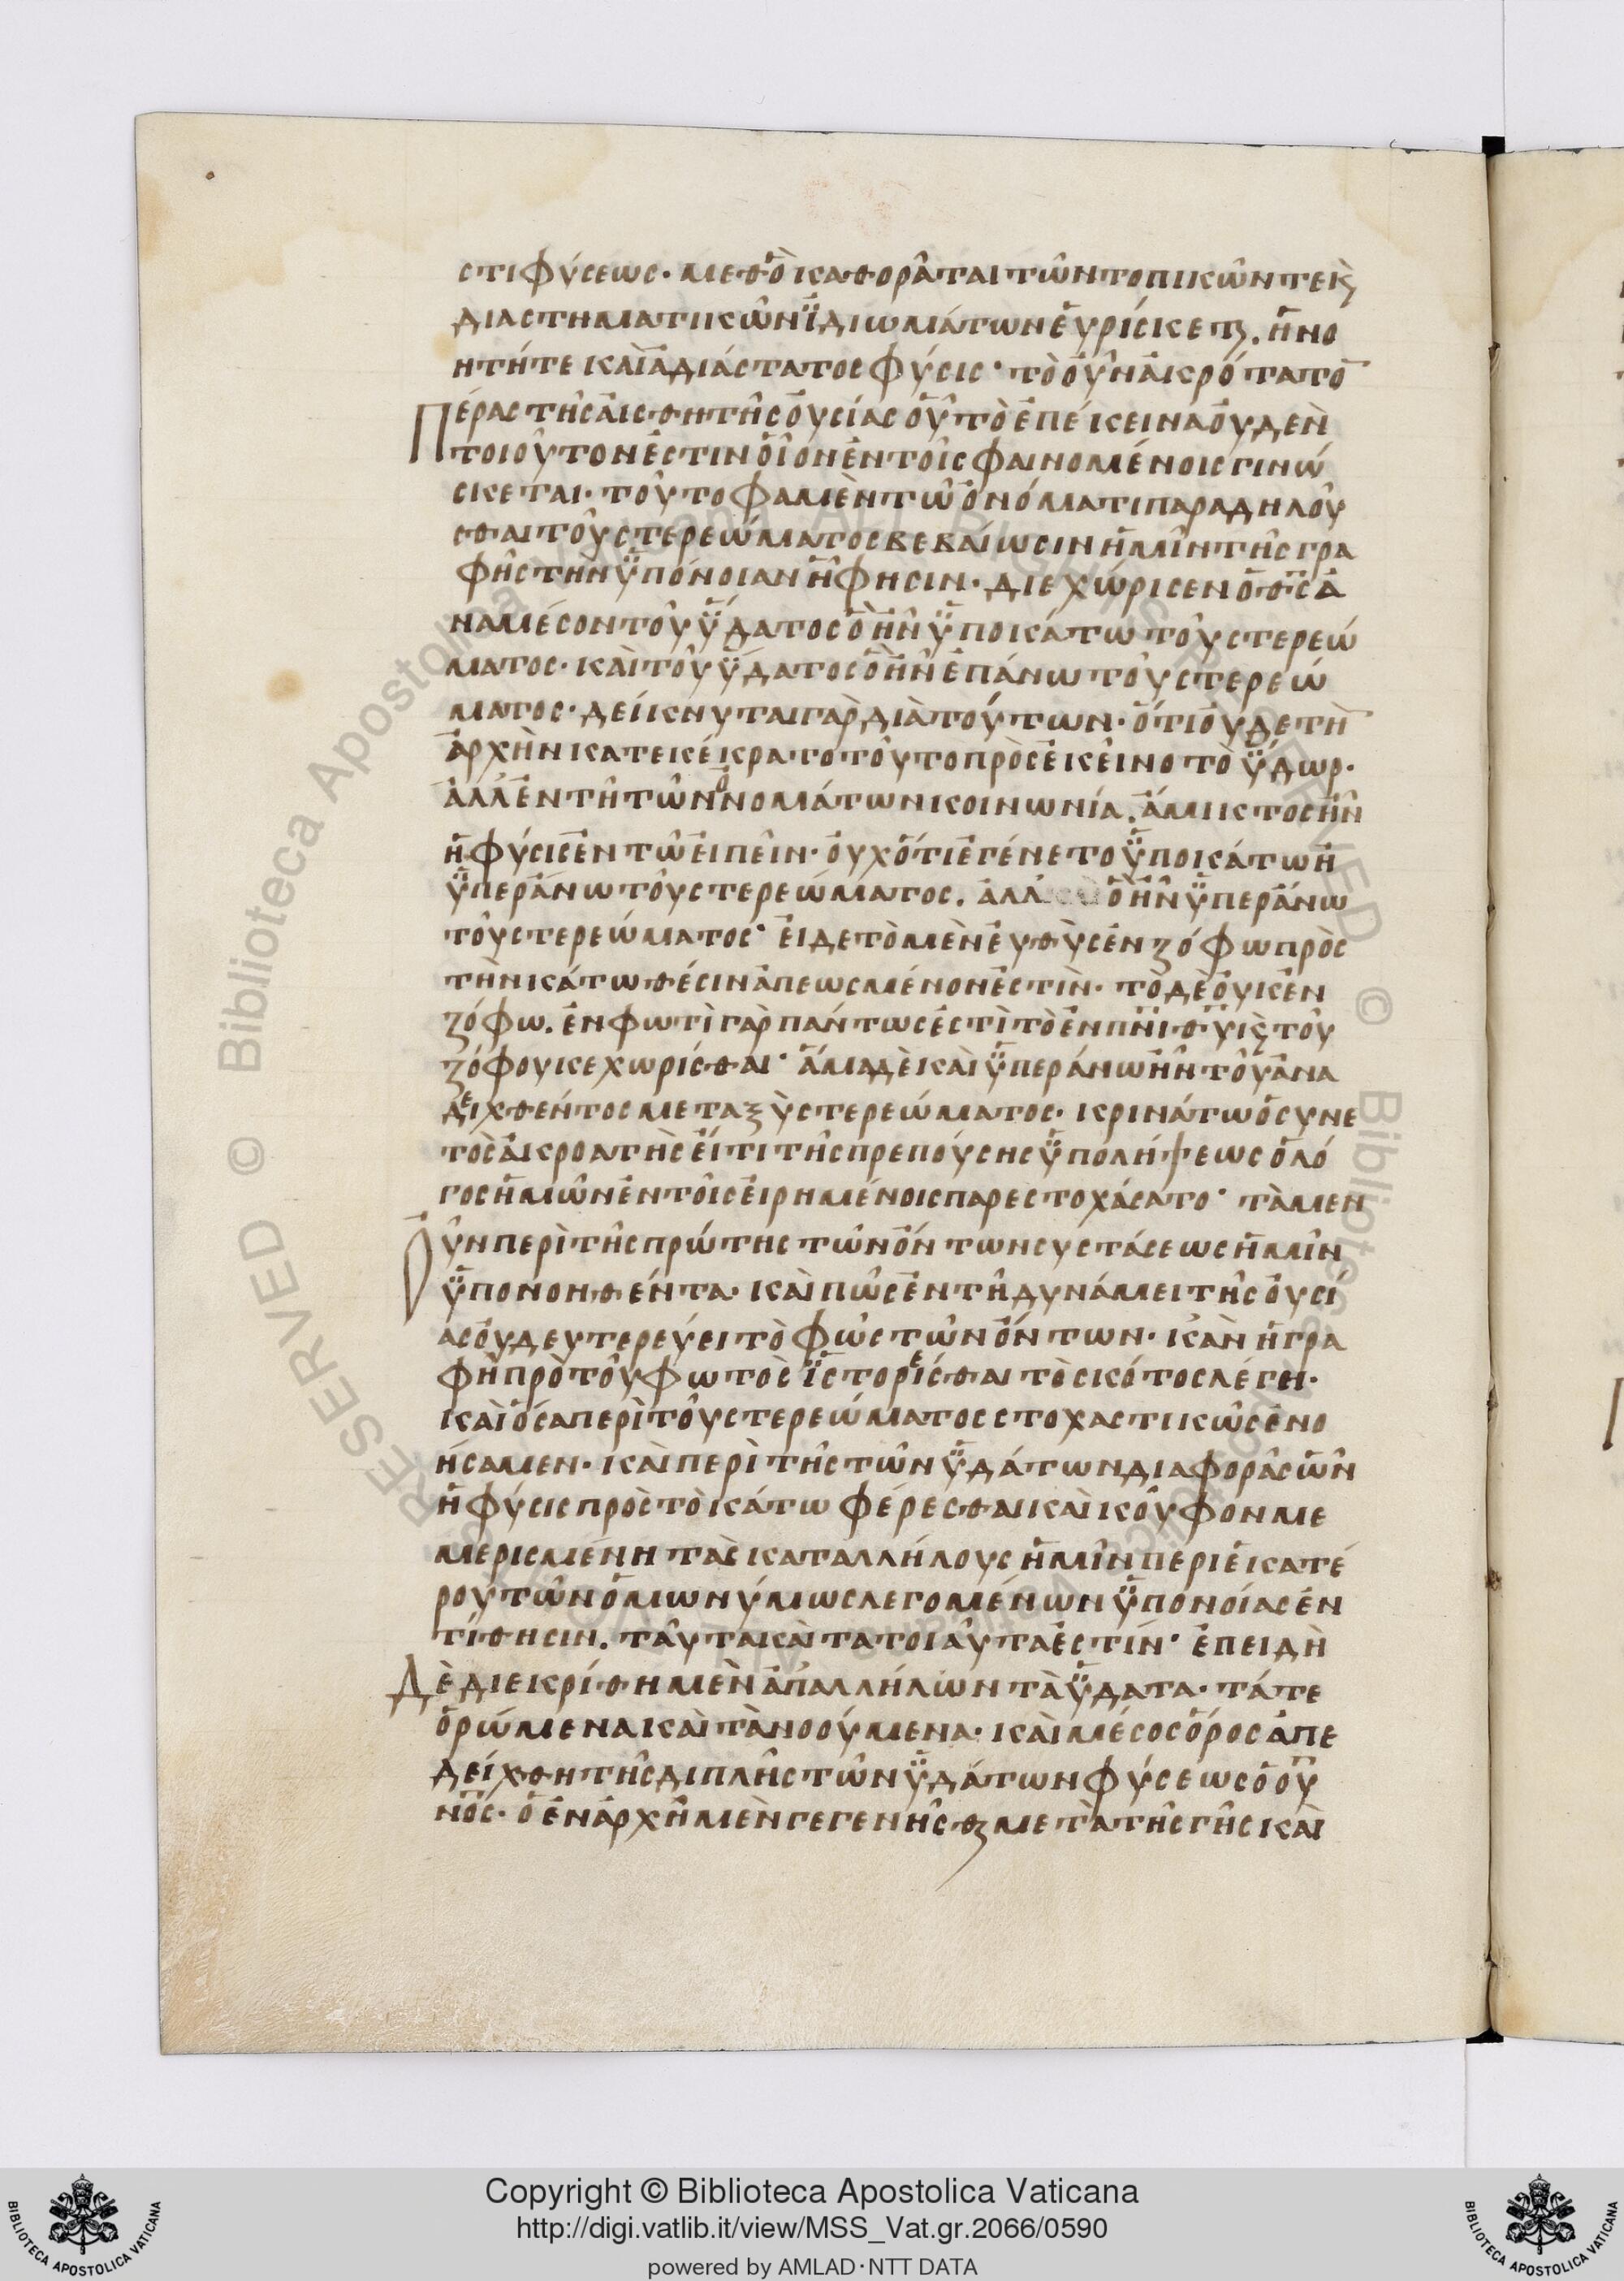 στι φύσεως· μεθ ὃ καθορᾶται τῶν τοπικῶν τε κ(αὶ)
διαστηματικῶν ϊδιωμάτων ἑυρίσκετ(αι). ἡ νο
ητή τε καὶ ἀδιάστατος φύσις· τὸ οὖν ἀκρότατο̅
Πέρας τῆς αἰσθητῆς οὐσίας οὗ τὸ ἐπέκεινα οὐδὲν
τοιοῦτον ἐστιν οἷον ἐν τοῖς φαινομένοις γινώ
σκεται· τοῦτο φαμὲν τῶ ὀνόματι παραδηλοῦ
σθαι τοῦ στερεώματος βεβαίωσιν ἡμῖν τῆς γρα
φῆς τὴν ϋπόνοιαν ἧ φησιν· διεχώρισεν ὁ θ̅ς̅ ἀ
ναμέσον τοῦ ϋδατος ὃ ἦν ϋποκάτω τοῦ στερεώ
ματος· καὶ τοῦ ϋδατος ὃ ἦν ἐπάνω τοῦ στερεώ
ματος· δείκνυται γὰρ διὰ τούτων· ὅτι οὐδε τὴ̅
ἀρχὴν κατεκέκρατο τοῦτο πρὸς ἐκεῖνο τὸ ὕδωρ·
ἀλλ ἐν τῆ τῶν ὀνομάτων κοινωνία. ἄμικτος ἦν
ἡ φύσις ἐν τῶ εἰπεῖν· οὐχ ὅτι ἐγένετο ϋποκάτω ἢ
ϋπεράνω τοῦ στερεώματος. ἀλλ ὃ ἦν ϋπεράνω
τοῦ στερεώματος· εἰ δε τὸ μὲν ἐυθὺς ἐν ζόφω πρὸς
τὴν κάτω θέσιν ἀπεωσμένον ἐστὶν· τὸ δὲ οὐκ ἐν
ζόφω. ἐν φωτὶ γὰρ πάντως ἐστὶ τὸ ἐν π̅ν̅ι̅ θ̅υ̅ κ(αὶ) τοῦ
ζόφου κεχωρίσθαι· ἅμα δὲ καὶ ϋπεράνω ἦν τοῦ ἀνα
δειχθέντος μεταξὺ στερεώματος· κρινάτω ὁ συνε
τὸς ἀκροατὴς εἴ τι τῆς πρεπούσης ϋπολήψεως ὁ λό
γος ἡμῶν ἐν τοῖς εἰρημένοις παρεστοχάσατο· τὰ μεν
Οὖν περὶ τῆς πρώτης τῶν ὄντων συστάσεως ἡμῖν
ϋπονοηθέντα· καὶ πῶς ἐν τῆ δυνάμει τῆς οὐσί
ας οὐ δευτερεύει τὸ φῶς τῶν ὄντων· κἀν ἡ γρα
φὴ πρὸ τοῦ φωτὸς ϊστορεῖσθαι τὸ σκότος λέγει·
καὶ ὅσα περὶ τοῦ στερεώματος στοχαστικῶς ἐνο
ήσαμεν· καὶ περὶ τῆς τῶν ϋδάτων διαφορᾶς ὧν
ἡ φύσις πρὸς τὸ κάτω φέρεσθαι καὶ κοῦφον με
μερισμένη τὰς καταλλήλους ἡμῖν περι ἑκατέ
ρου τῶν ὁμωνύμως λεγομένων ϋπονοίας ἐν
τίθησιν. ταῦτα καὶ τα τοιαῦτα ἐστίν· ἐπειδὴ
Δὲ διεκρίθη μὲν ἀπ αλλήλων τὰ ϋδατα· τά τε
ὁρώμενα καὶ τὰ νοούμενα· καὶ μέσος ὅρος ἀπε
δείχθη τῆς διπλῆς τῶν ϋδάτων φύσεως ὁ ο̅υ̅
ν̅ο̅ς̅· ὁ ἐν ἀρχῆ μὲν γεγενῆσθ(αι) μετὰ τῆς γῆς καὶ
Copyright © Biblioteca Apostolica Vaticana
http://digi.vatlib.it/view/MSS_Vat.gr.2066/0590
powered by AMLAD·NTT DATA